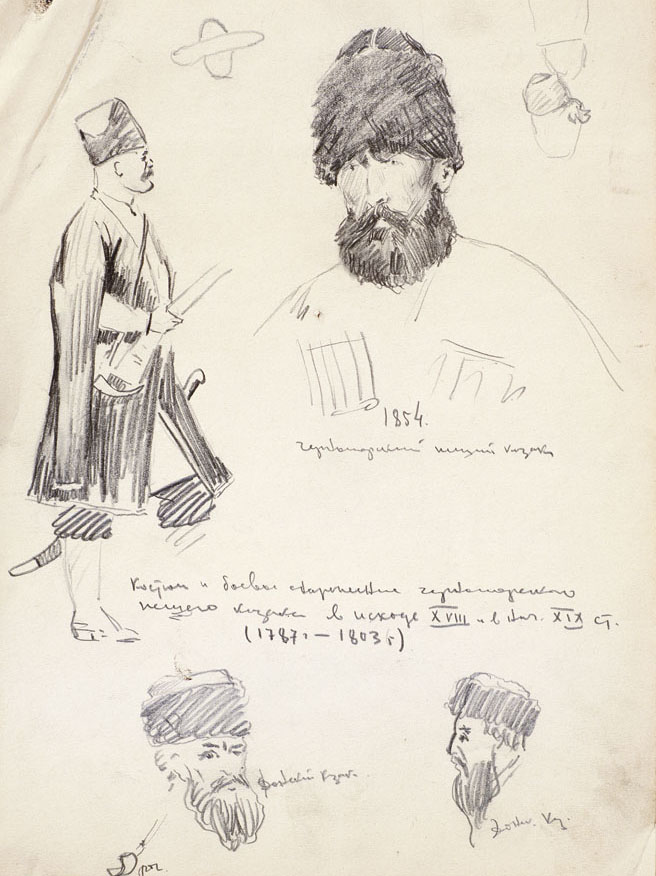 1854.
черноморский пеший казак
Костюм и боевое снаряжение черноморского
пешего казака в исходе XVIII и в нач. XIX ст.
(1787г. — 1803г.)
донской казак
Донск. Каз.